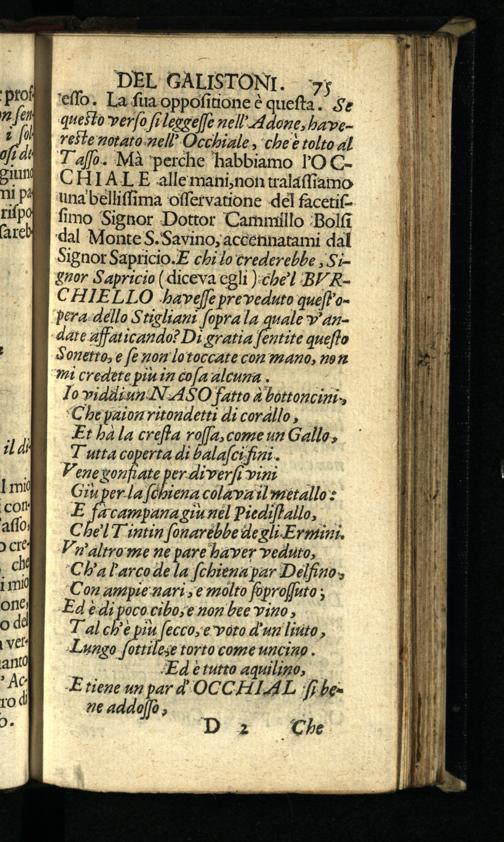 DEL GALISTONI. 75
esso. La sua oppositione è questa. Se
questo verso si leggesse nell'Adone, have-
reste notato nell'Occhiale, che è tolto al
Tasso. Mà perche habbiamo l'OC-
CHIALE alle mani, non tralassiamo
una bellissima osservatione del facetis-
simo Signor Dottor Cammillo Bolsi
dal Monte S. Savino, accennatami dal
Signor Sapricio. E chi lo crederebbe, Si-
gnor Sapricio (diceva egli) che'l BVR-
CHIELLO havesse preveduto quest'o-
pera dello Stigliani sopra la quale v'an-
date affaticando? Di gratia sentite questo
Sonetto, e se non lo toccate con mano, non
mi credete più in cosa alcuna.
Io viddi un NASO fatto à bottoncini,
Che paion ritondetti di corallo,
Et hà la cresta rossa, come un Gallo,
Tutta coperta di balasci fini.
Vene gonfiate per diversi vini
Giu per la schiena colava il metallo:
E fa campana giù nel Piedistallo,
Che'l Tintin sonarebbe degli Ermini.
Vn'altro me ne pare haver veduto,
Ch'a l'arco de la schiena par Delfino,
Con ampie nari, e molto soprossuto;
Ed è di poco cibo, e non bee vino,
Tal ch'è più secco, e voto d'un liuto,
Lungo sottile, e torto come uncino.
Ed è tutto aquilino,
E tiene un par d'OCCHIAL si be-
ne addosso,
D 2 Che
prof-
n sen-
i sol-
osi de-
giuno
mi pa-
rispo-
sareb-
il di-
l mio
i con-
asso,
o cre-
che
i mio
one,
o del
a ver-
tanto
l'Ac-
ro di
o.